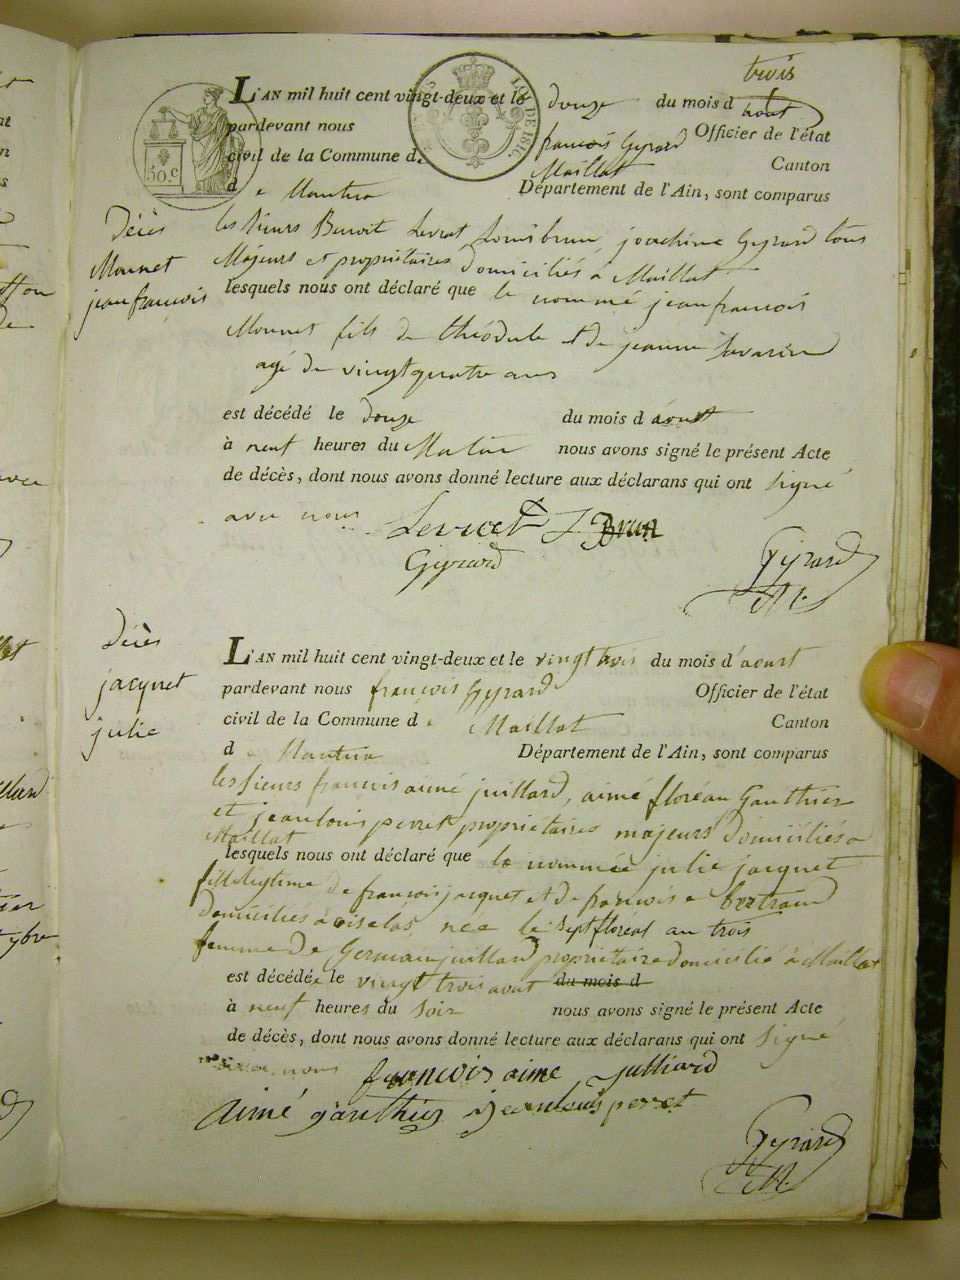 trois
L'AN mil huit cent vingt-deux et le douze du mois d août
pardevant nous françois Gyrard Officier de l'état
civil de la Commune de Maillat Canton
d e Nantua Département de l'Ain, sont comparus
50.c
Décès
Monnet
jean françois
les sieurs Benoit Levrat Louis brun, joachim Gyrard tous
Majeurs et propriétaires domiciliés à Maillat
lesquels nous ont déclaré que le nommé jean françois
Monnet fils de théodule et de jeanne Savarin
agé de vingt quatre ans
est décédé le douze du mois d aoust
à neuf heures du Matin nous avons signé le présent Acte
de décès, dont nous avons donné lecture aux déclarans qui ont signé
avec nous Levrat J Brun
Gyrard
Gyrard
M.
Décès
jacquet
julie
L'AN mil huit cent vingt-deux et le vingt trois du mois d'aoust
pardevant nous françois Gyrard Officier de l'état
civil de la Commune d e Maillat Canton
d e Nantua Département de l'Ain, sont comparus
les sieurs françois aimé juillard, aimé floréau Gauthier
et jean louis perret propriétaires majeurs domiciliés a
Maillat
lesquels nous ont déclaré que la nommée julie jacquet
fille legitime de françois jacquet et de françoise bertrand
domiciliés a née le sept floréal an trois
femme de Germain juillard propriétaire domicilié à Maillat
est décédée le vingt trois aout du mois d
à neuf heures du soir nous avons signé le présent Acte
de décès, dont nous avons donné lecture aux déclarans qui ont signé
nous françois aimé julliard
aimé gauthier jean louis perret
Gyrard
M.